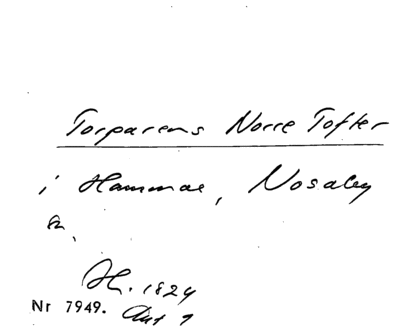 Torparens Norre Tofter
i Hammar, Nosaby
sn.
Th. 1824
Nr 7949.